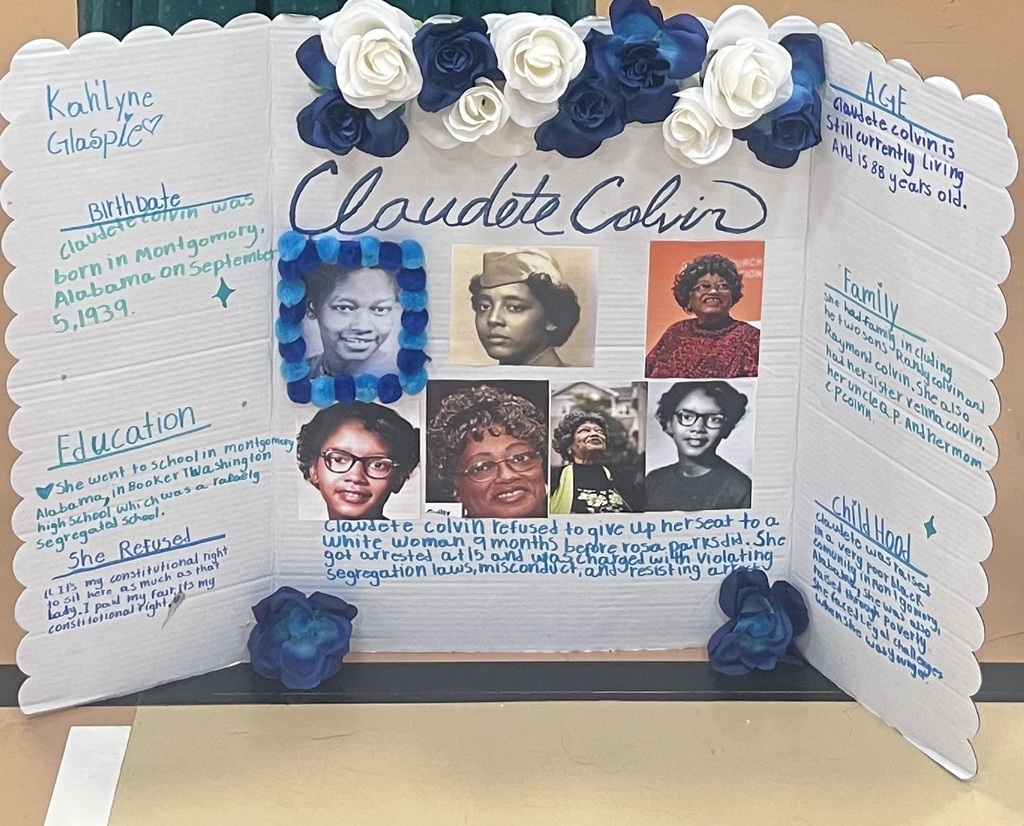 Kah'lyne
Glaspie
BirthDate
Claudete colvin was
born in Montgomory,
Alabama on September
5,1939.
Education
She went to school in montgomory
Alabama, in Booker T Washington
high School which was a racially
segregated school.
She Refused
"It's my constitutional right
to sit here as much as that
Lady. I paid my fair, its my
constitutional right.
Claudete Colvin
Claudete colvin refused to give up her seat to a
white woman 9 months before rosa parks did. She
got arrested at 15 and was charged with violating
segregation laws, misconduct, and resisting arrest
AGE
Claudete colvin is
still currently living
And is 88 years old.
Family
She had family including
he two sons, Randy colvin and
Raymond colvin. She also
had her sister velma colvin,
her uncle Q.P. And her mom
C.P colvin.
ChildHood
Claudete was raised
in a very poor black
comunity in montgomory,
Alabama, she was also
raised through poverty
she faced Legal challenges
when she was younger